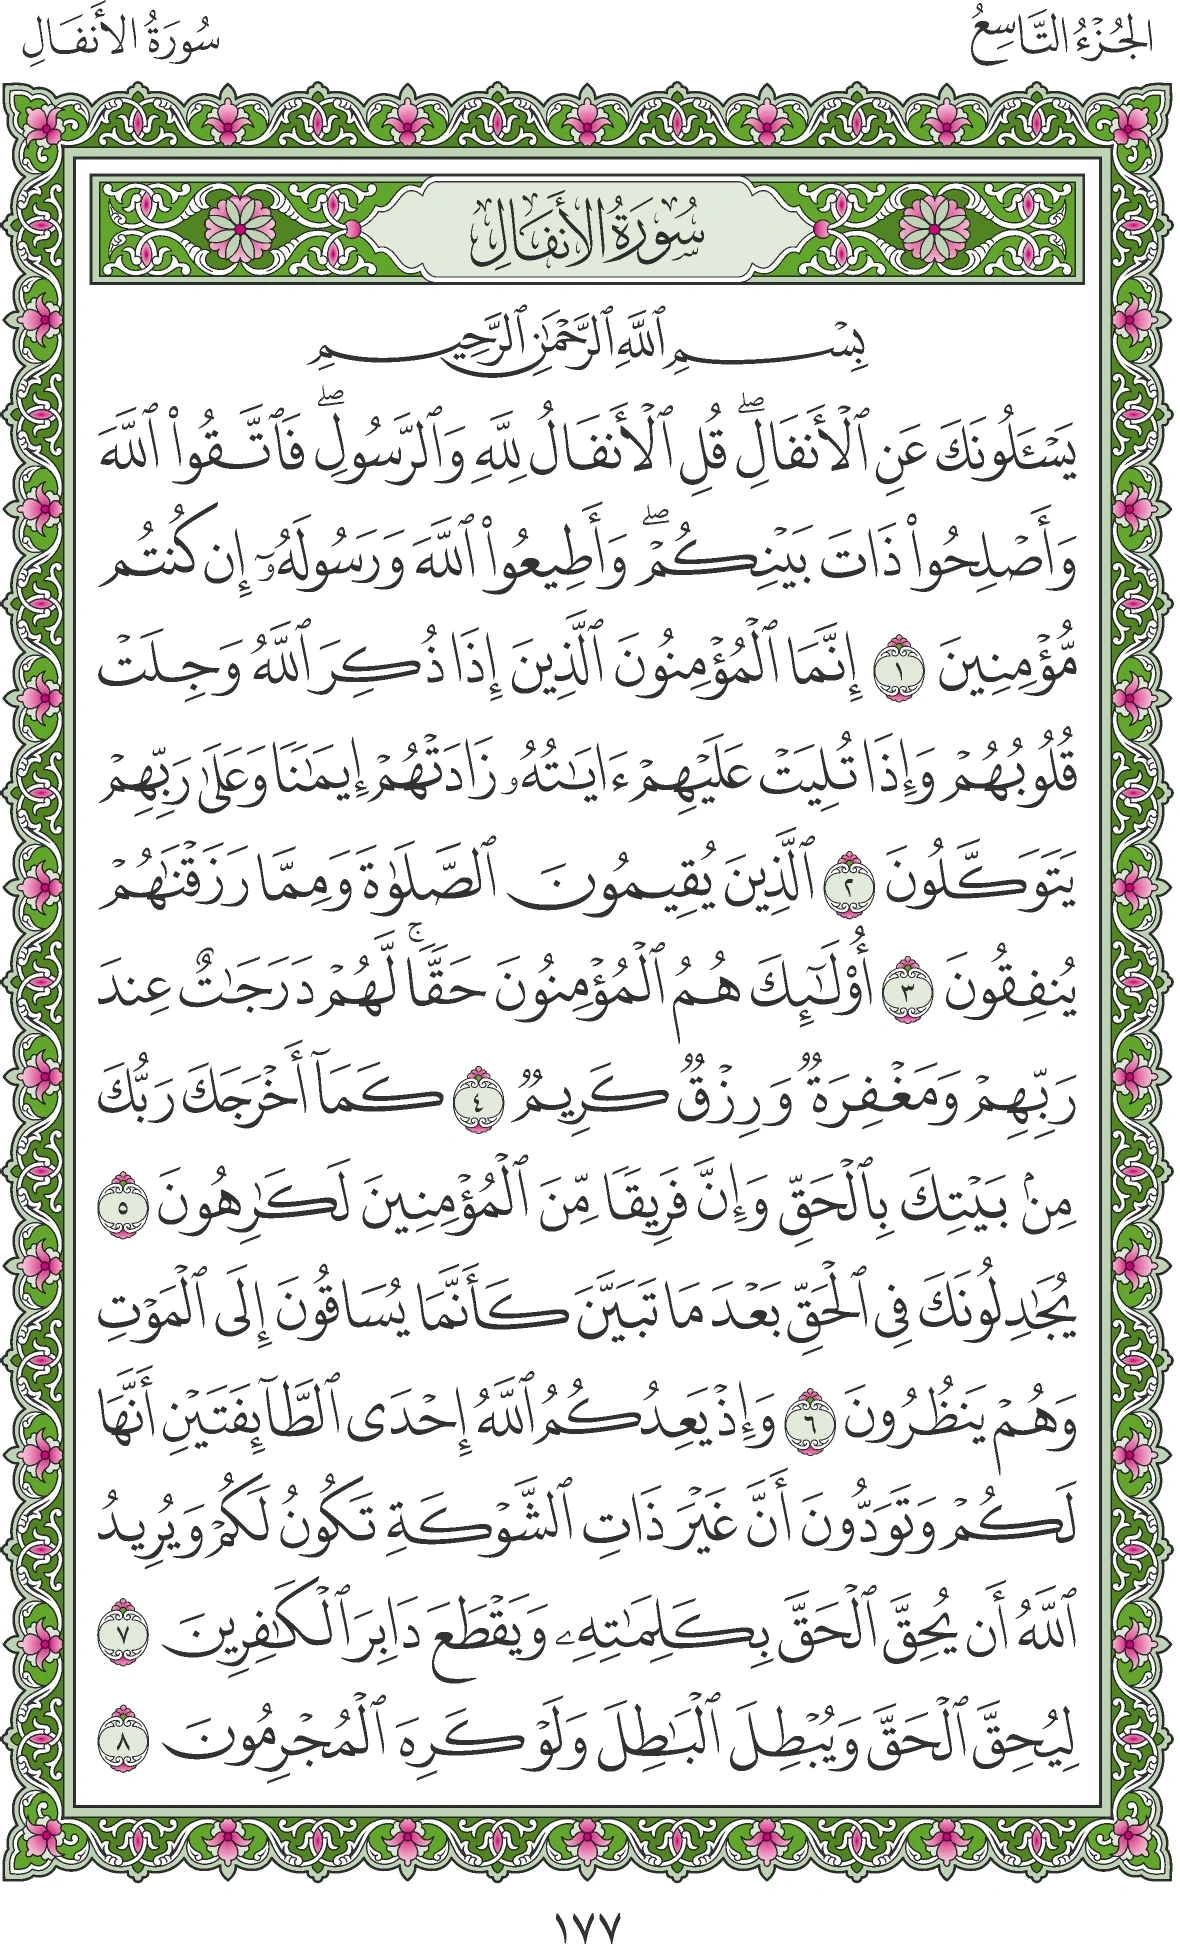 الجُزْءُ التَّاسِعُ
سُورَةُ الأَنفَالِ
سُورَةُ الأَنفَالِ
بِسۡمِ ٱللَّهِ ٱلرَّحۡمَٰنِ ٱلرَّحِيمِ
يَسۡـَٔلُونَكَ عَنِ ٱلۡأَنفَالِۖ قُلِ ٱلۡأَنفَالُ لِلَّهِ وَٱلرَّسُولِۖ فَٱتَّقُواْ ٱللَّهَ
وَأَصۡلِحُواْ ذَاتَ بَيۡنِكُمۡۖ وَأَطِيعُواْ ٱللَّهَ وَرَسُولَهُۥٓ إِن كُنتُم
مُّؤۡمِنِينَ ١ إِنَّمَا ٱلۡمُؤۡمِنُونَ ٱلَّذِينَ إِذَا ذُكِرَ ٱللَّهُ وَجِلَتۡ
قُلُوبُهُمۡ وَإِذَا تُلِيَتۡ عَلَيۡهِمۡ ءَايَٰتُهُۥ زَادَتۡهُمۡ إِيمَٰنٗا وَعَلَىٰ رَبِّهِمۡ
يَتَوَكَّلُونَ ٢ ٱلَّذِينَ يُقِيمُونَ ٱلصَّلَوٰةَ وَمِمَّا رَزَقۡنَٰهُمۡ
يُنفِقُونَ ٣ أُوْلَٰٓئِكَ هُمُ ٱلۡمُؤۡمِنُونَ حَقّٗاۚ لَّهُمۡ دَرَجَٰتٌ عِندَ
رَبِّهِمۡ وَمَغۡفِرَةٞ وَرِزۡقٞ كَرِيمٞ ٤ كَمَآ أَخۡرَجَكَ رَبُّكَ
مِنۢ بَيۡتِكَ بِٱلۡحَقِّ وَإِنَّ فَرِيقٗا مِّنَ ٱلۡمُؤۡمِنِينَ لَكَٰرِهُونَ ٥
يُجَٰدِلُونَكَ فِي ٱلۡحَقِّ بَعۡدَ مَا تَبَيَّنَ كَأَنَّمَا يُسَاقُونَ إِلَى ٱلۡمَوۡتِ
وَهُمۡ يَنظُرُونَ ٦ وَإِذۡ يَعِدُكُمُ ٱللَّهُ إِحۡدَى ٱلطَّآئِفَتَيۡنِ أَنَّهَا
لَكُمۡ وَتَوَدُّونَ أَنَّ غَيۡرَ ذَاتِ ٱلشَّوۡكَةِ تَكُونُ لَكُمۡ وَيُرِيدُ
ٱللَّهُ أَن يُحِقَّ ٱلۡحَقَّ بِكَلِمَٰتِهِۦ وَيَقۡطَعَ دَابِرَ ٱلۡكَٰفِرِينَ ٧
لِيُحِقَّ ٱلۡحَقَّ وَيُبۡطِلَ ٱلۡبَٰطِلَ وَلَوۡ كَرِهَ ٱلۡمُجۡرِمُونَ ٨
١٧٧